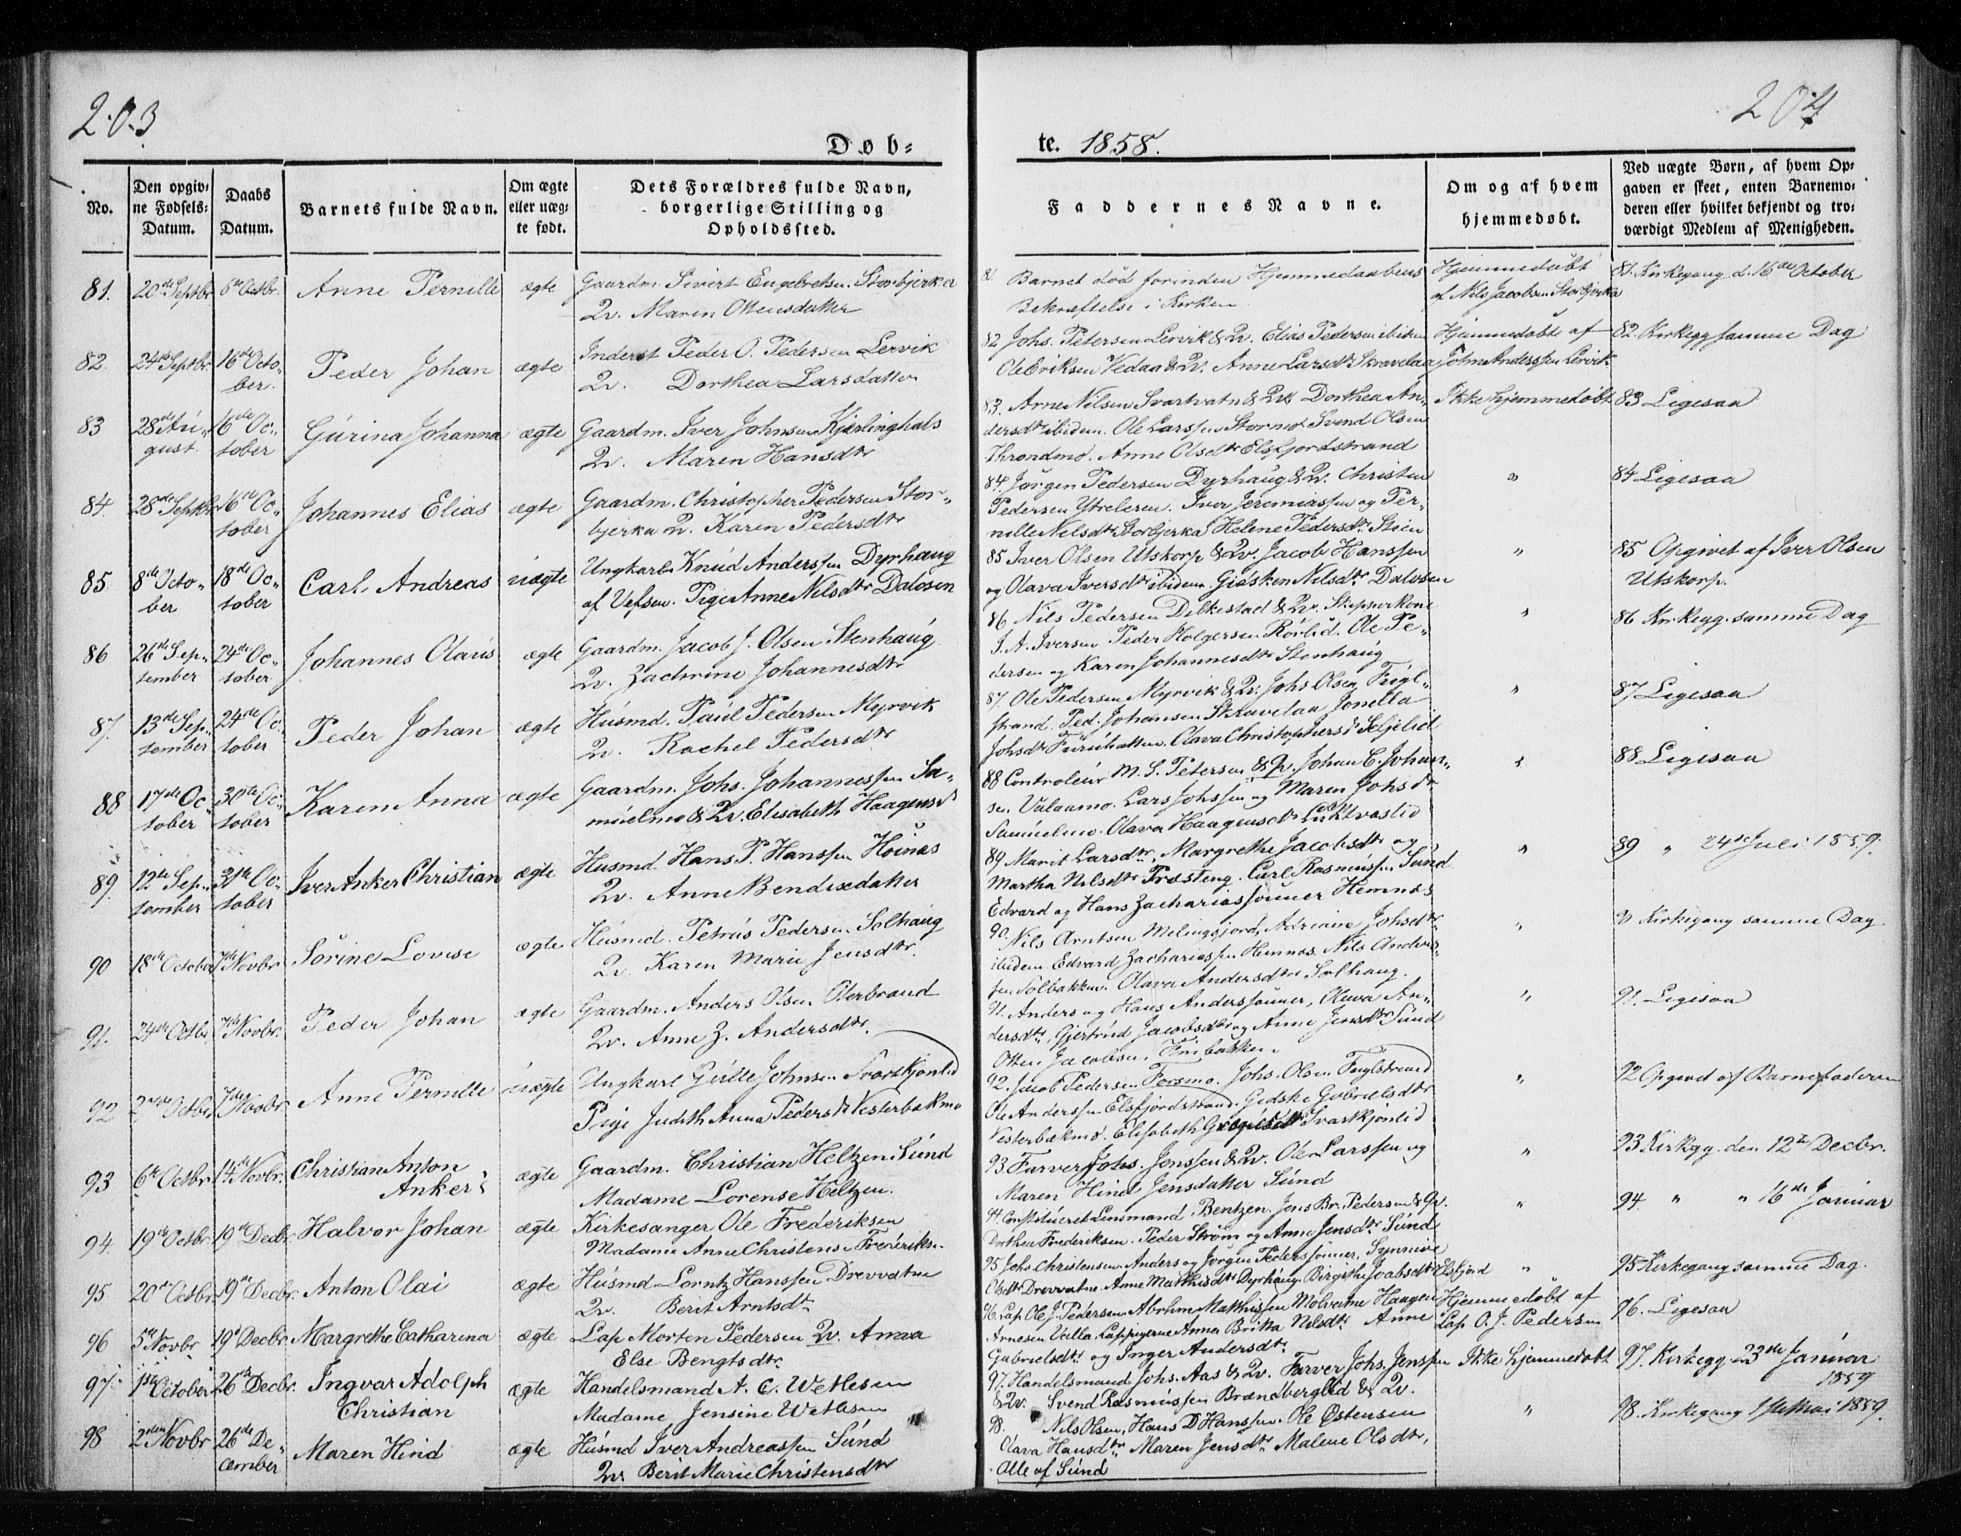 203
204
Døb-
te. 1858.
No.
Den opgiv-
ne Fødsels-
Datum.
Daabs
Datum.
Barnets fulde Navn.
Om ægte
eller uæg-
te født.
Dets Forældres fulde Navn,
borgerlige Stilling og
Opholdssted.
Faddernes Navne.
Om og af hvem
hjemmedøbt.
Ved uægte Børn, af hvem Op-
gaven er skeet, enten Barnemo-
deren eller hvilket bekjendt og tro-
værdigt Medlem af Menigheden.
81. 20de Septbr 6te Octbr. Anne Pernille ægte Gaardm. Sivert Engebretsen Storbjerka
Qv. Maren Ottersdatter
81 Barnet død forinden Hjemmedaabens
Bekræftelse i Kirken
Hjemmedøbt
af Nils Jacobsen Storbjerka
81. Kirkegang d. 16de October
82. 24de Septbr. 16de Octo-
ber. Peder Johan ægte Inderst Peder O. Pedersen Lervik
Qv. Dorthea Larsdatter
82 Johs. Petersen Lervik & Qv. Elias Pedersen ibiden
Ole Eriksen Vedaa & Qv. Anne Larsdtr Skravelaa
Hjemmedøbt af
John Anderssen Lervik
82 Kirkegg samme Dag
83 28de Au-
gust. 16de Oc-
tober Gurina Johanna ægte Gaardm. Iver Johnsen Kjærlinghals
Qv. Maren Hansdtr
83. Arne Nilsen Svartvatn & Qv. Dorthea An-
dersdtr ibidem. Ole Larssen Stormo Svend Olsen
Throndmo. Anne Olsdtr Elsfjordstrand
Ikke hjemmedøbt
83 Ligesaa
84 28de Septbr 16de Oc-
tober Johannes Elias ægte Gaardm. Christopher Pedersen Stor-
bjerka Qv. Karen Pedersdtr
84 Jørgen Pedersen Dyrhaug & Qv. Christen
Pedersen Ytreleren. Iver Jeremiassen og Per-
nille Nilsdtr Storbjerka Helene Pedersdtr Stien
"
84 Ligesaa
85 8de Octo-
ber 18de Oc-
tober Carl Andreas uægte Ungkarl Knud Anderssen Dyrhaug
af Vefsen. Pige Anne Nilsdtr Dalosen
85 Iver Olsen Utskorp & Qv. Jacob Hanssen
og Olava Iversdtr ibidem. Gidsken Nilsdtr Dalosen
"
85 Opgivet af Iver Olsen
Utskorp.
86 26de Sep-
tember 24de Oc-
tober Johannes Olaus ægte Gaardm. Jacob J. Olsen Stenhaug
Qv. Zachrine Johannesdtr
86 Nils Pedersen Dilkestad & Qv. Skipperkone
J. A. Iversen Peder Holgersen Rørlid. Ole Pe-
dersen og Karen Johannesdtr Stenhaug
"
86 Kirkegg. samme Dag
87. 13de Sep-
tember 24de Oc-
tober Peder Johan ægte Husmd. Paul Pedersen Myrvik
Qv. Rachel Pedersdtr
87. Ole Pedersen Myrvik & Qv. Johs Olsen Fugl-
strand. Ped. Johansen Skravelaa Jonetta
Johsdtr Furuhatten. Olava Christophersdtr Seljelid
"
87 Ligesaa
88 17de Oc-
tober 30te Oc-
tober Karen Anna ægte Gaardm. Johs. Johannessen Sa-
muelmo & Qv. Elisabeth Haagensdtr
88 Controleur M. S. Petersen & Qv. Johan C. Johan-
sen Valaamo. Lars Johssen og Maren Johsdtr
Samuelmo. Olava Haagensdtr Luktvaslid
"
88 Ligesaa
89. 12te Sep-
tember 31te Oc-
tober Iver Anker Christian ægte Husmd Hans P. Hanssen Høinæs
Qv. Anne Bendixdatter
89 Marit Larsdtr, Margrethe Jacobsdtr og
Martha Nilsdtr Træsteng. Carl Rasmussen Sund
Edvard og Hans Zachariassønner Hemnæs
"
89 " 24de Juli 1859.
90 18de October 7de Novbr Sørine Lovise ægte Husmd. Petrus Pedersen Solhaug
Qv. Karen Marie Jensdtr.
90. Nils Arntsen Melingfjord, Adriane Johsdtr
ibidem Edvard Zachariassen Hemnæs. Nils Anders-
sen Solbakken. Olava Andersdtr Solhaug.
"
90 Kirkegang samme Dag
91. 24de Octbr 7de Novbr. Peder Johan ægte Gaardm. Anders Olsen Oterbrand
Qv. Anne Z. Andersdtr.
91. Anders og Hans Anderssønner, Olava An-
dersdtr, Gjertrud Jacobsdtr og Anne Jensdtr Sund
Otten Jacobsen. Finbakken
"
91. Ligesaa
92 Octbr 7de Novbr. Anne Pernille uægte Ungkarl Gulle Johnsen Svartkjønlid
Pige Judith Anna Pedersdtr Vesterbækmo
92. Jacob Pedersen Forsmo. Johs. Olsen Fuglstrand
Ole Anderssen Elsfjordstrand. Gidske Gabrielsdtr
Vesterbækmo. Elisabeth Svartkjønlid
"
92 Opgivet af Barnefaderen
93 6te Octbr 14de Novbr. Christian Anton
Anker ægte Gaardm. Christian Heltzen Sund
Madame Lorense Heltzen.
93. Farver Johs. Jenssen & Qv. Ole Larssen og
Maren Hind Jensdatter Sund
"
93 Kirkegg. den 12te Decbr.
94. 19de Octbr 19de Decbr. Halvor Johan ægte Kirkesanger Ole Frederiksen
Madame Anne Christense Frederiks.
94. Constitueret Lensmand Bentzen Jens Br. Pedersen & Qv.
Dorthea Frederiksen. Peder Strøm og Anne Jensdtr Sund
"
94. " " 16de Januar
95 20de Octbr 19de Decbr. Anton Olai ægte Husmd Lorntz Hanssen Drevvatne
Qv. Berit Arntsdtr
95 Johs Christensen Anders og Jørgen Pederssønner, Synnive
Olsdtr Drevvatne Anne Mathisdtr Dyrhaug Birgithe Joabsdtr Elsfjord
"
95 Kirkegang samme Dag.
96 5te Novbr 19de Decbr. Margrethe Catharina ægte Lap Morten Pedersen Qv. Anna
Else Bengtsdtr.
96. Lap Ole J. Pedersen Abrhm Mathissen Molvatne Haagen
Arnesen Villa Lappigerne Anna Britta Nilsdtr Anne
Gabrielsdtr og Inger Andersdtr.
Hjemmedøbt af
Lap O. J. Pedersen
96. Ligesaa
97. 1ste October 26de Decbr. Ingvar Adolph
Christian ægte Handelsmand A. C. Wetlesen
Madame Jensine Wetlesen
97. Handelsmand Johs. Aas & Qv. Farver Johs. Jenssen
& Qv. Svend Rasmussen Brændberglid & Qv.
Ikke hjemmedøbt
97. Kirkegg 23de Januar
1859
98 2den Novbr 26de De-
cember Maren Hind ægte Husmd Iver Andreassen Sund
Qv. Berit Marie Christensdtr
98. Nils Olsen, Hans D Hanssen. Ole Østensen
Olava Hansdtr Maren Jensdtr Malene Olsdtr,
Alle af Sund
"
98. Kirkegang 1ste Mai 1859.